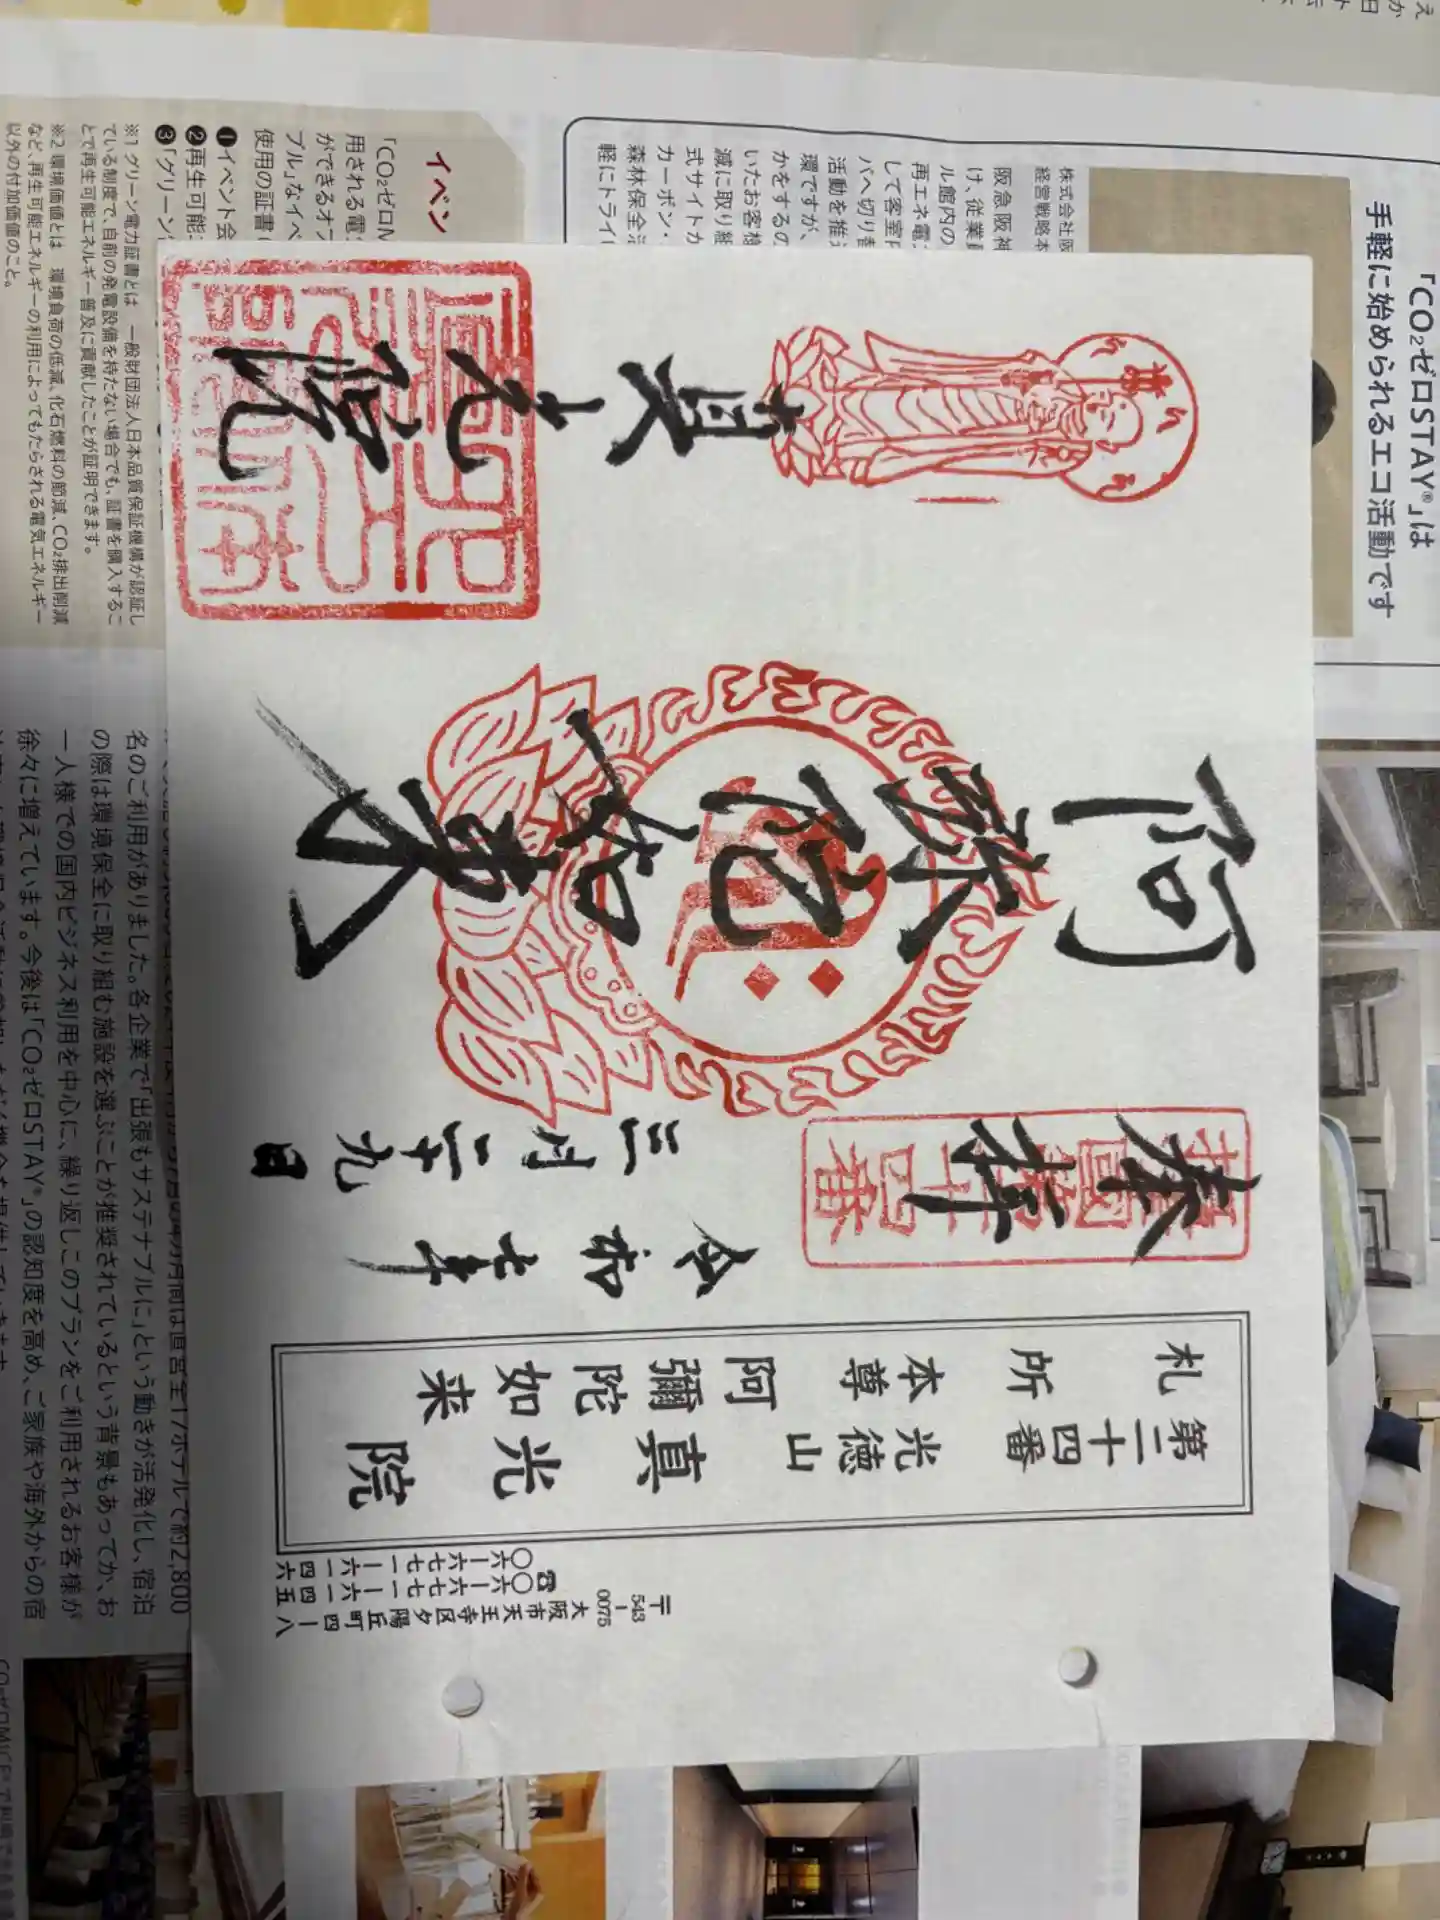 札所 第二十四番
本尊 光徳山
阿彌陀如来 真光院
〒543-0075
大阪市天王寺区夕陽丘町四ー八
☎〇六ー六七七一ー六一四五
〇六ー六七七一ー六一四六
奉拝
令和七年
三月二十九日
阿弥陀如来
真光院
「CO₂ゼロSTAY®」は
手軽に始められるエコ活動です
株式会社阪
経営戦略本
阪急阪神
け、従業員
ル館内の
再エネ電
して客室内
パへ切り替
活動を推進
環ですが、
かをするの
いたお客様
減に取り組
式サイトか
カーボン・
森林保全
軽にトライ
イベン
「CO₂ゼロM
用される電
ができるオフ
ブル」なイベ
使用の証書
❶イベント会
❷再生可能
❸「グリーン
※1 グリーン電力証書とは 一般財団法人日本品質保証機構が認証し
ている制度で、自前の発電設備を持たない場合でも、証書を購入するこ
とで再生可能エネルギー普及に貢献したことが証明できます。
※2 環境価値とは 環境負荷の低減、化石燃料の節減、CO₂排出削減
など、再生可能エネルギーの利用によってもたらされる電気エネルギー
以外の付加価値のこと。
月間は直営全17ホテルで約2,800
名のご利用がありました。各企業で「出張もサステナブルに」という動きが活発化し、宿泊
の際は環境保全に取り組む施設を選ぶことが推奨されているという背景もあってか、お
一人様での国内ビジネス利用を中心に、繰り返しこのプランをご利用されるお客様が
徐々に増えています。今後は「CO₂ゼロSTAY®」の認知度を高め、ご家族や海外からの宿